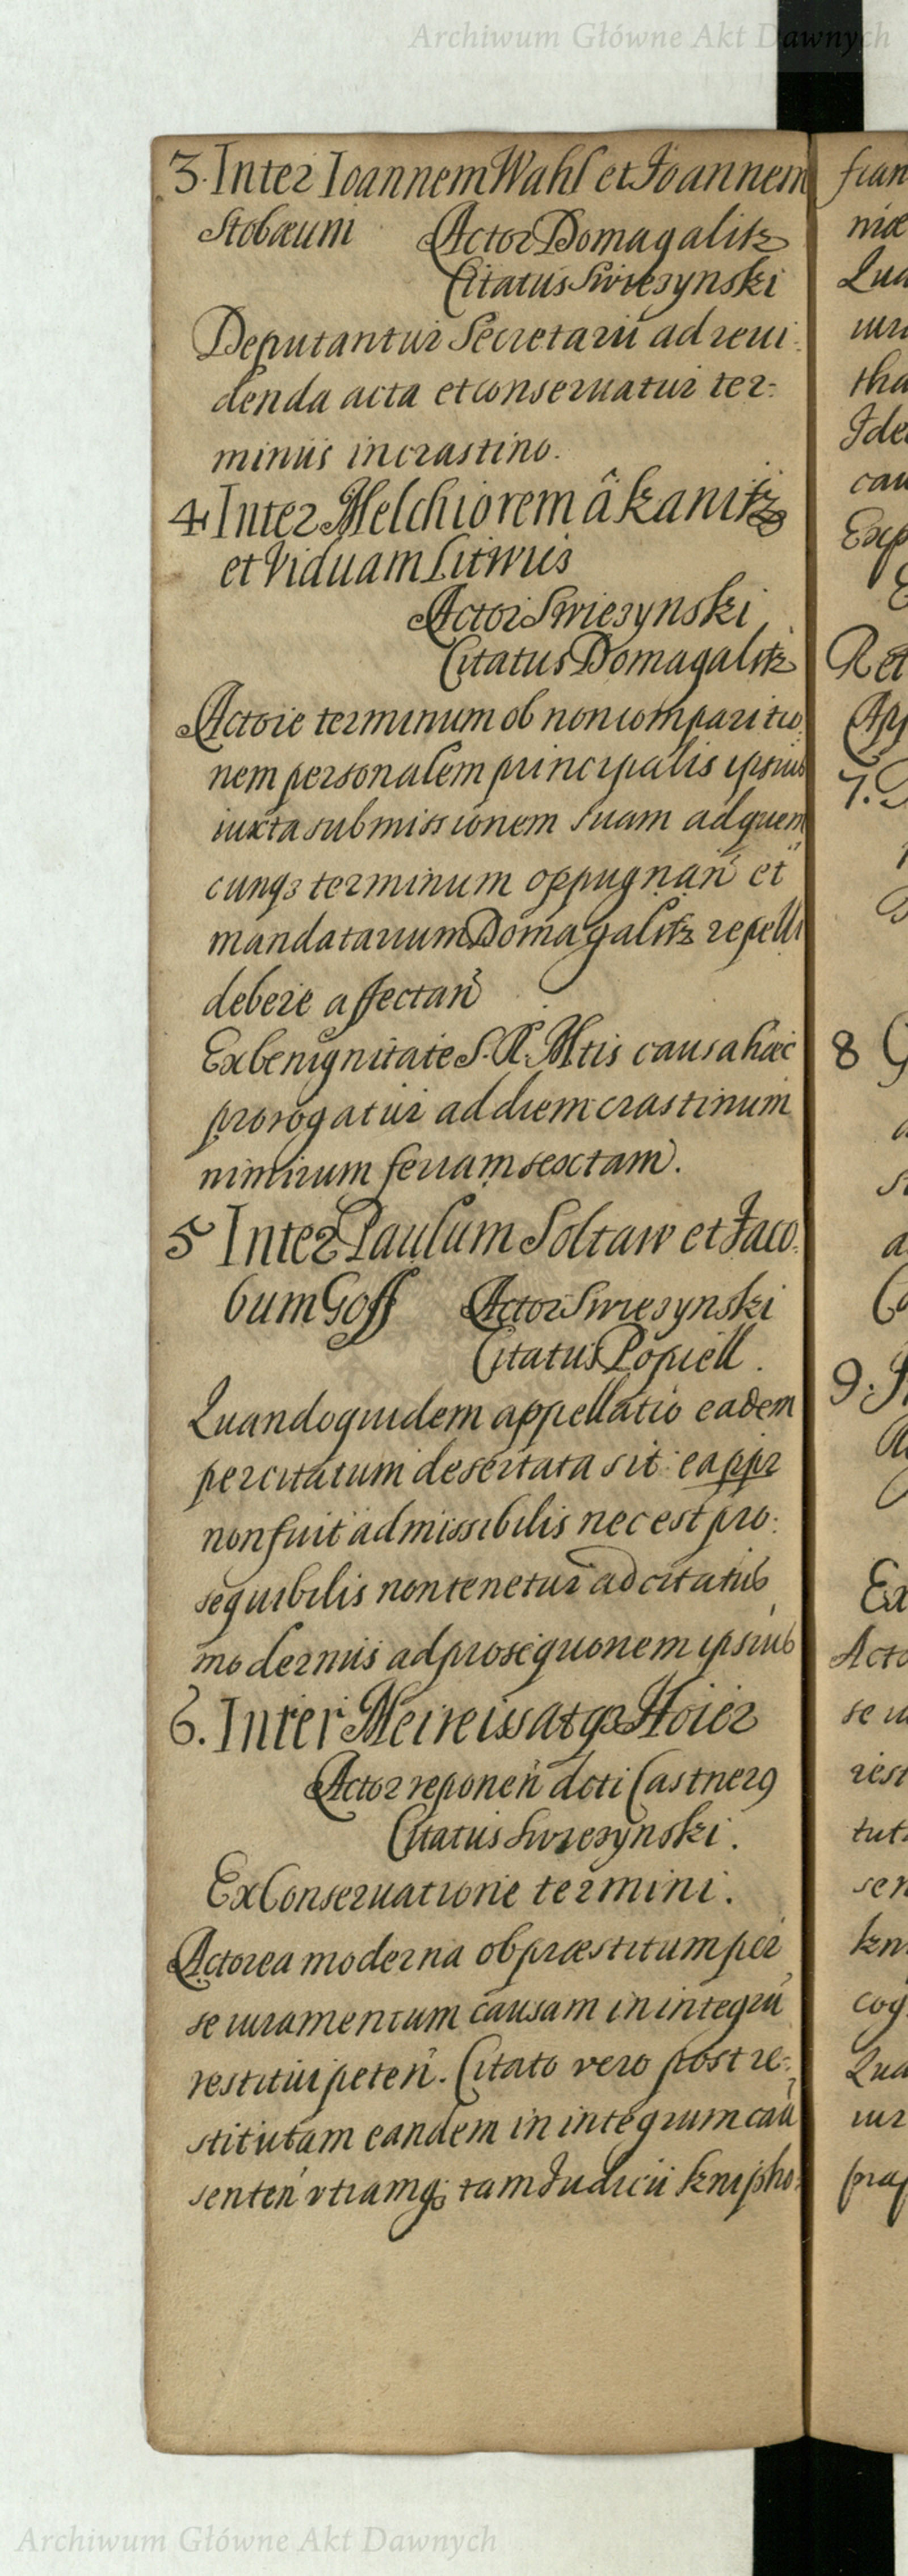 Archiwum Główne Akt Dawnych
3. Inter Ioannem Wahl et Joannem
Stobæum Actor Domagalitz
Citatus Swieszynski
Deputantur Secretarii ad reui-
denda acta et conseruatur ter-
minus in crastino.
4 Inter Melchiorem â Kanitz
et Viduam Litwus
Actor Swieszynski
Citatus Domagalitz
Actore terminum ob non comparitio
nem personalem principalis ipsius
iuxta submissionem suam ad quem
cunq3 terminum oppugnan et
mandatarium Domagalitz repelli
debere affectan
Ex benignitate S. R. Mtis causa hæc
prorogatur ad diem crastinum
nimirum feriam sextam.
5 Inter Paulum Soltaw et Jaco
bum Goff Actor Swieszynski
Citatus Popiell.
Quandoquidem appellatio eadem
per citatum desertata sit ea ppr
non fuit admissibilis nec est pro:
sequibilis non tenetur ad citatus
modernus ad prosequonem ipsius
6. Inter Meireissatq3 Hoier
Actor reponen dcti Castner9
Citatus Swieszynski.
Ex Conseruatione termini.
Actorea moderna ob præstitum per
se iuramentum causam in integru
restitui peten. Citato vero post re-
stitutam eandem in integrum cau
senten vtramq3 tam Judicii Knipho
fian
niæ
Qua
iur
tha
Ide
cau
Exp
Ret
App
7.
8
9.
Ex
Acto
se iu
rest
tut
sen
kni
cog
Qua
iur
præ
Archiwum Główne Akt Dawnych